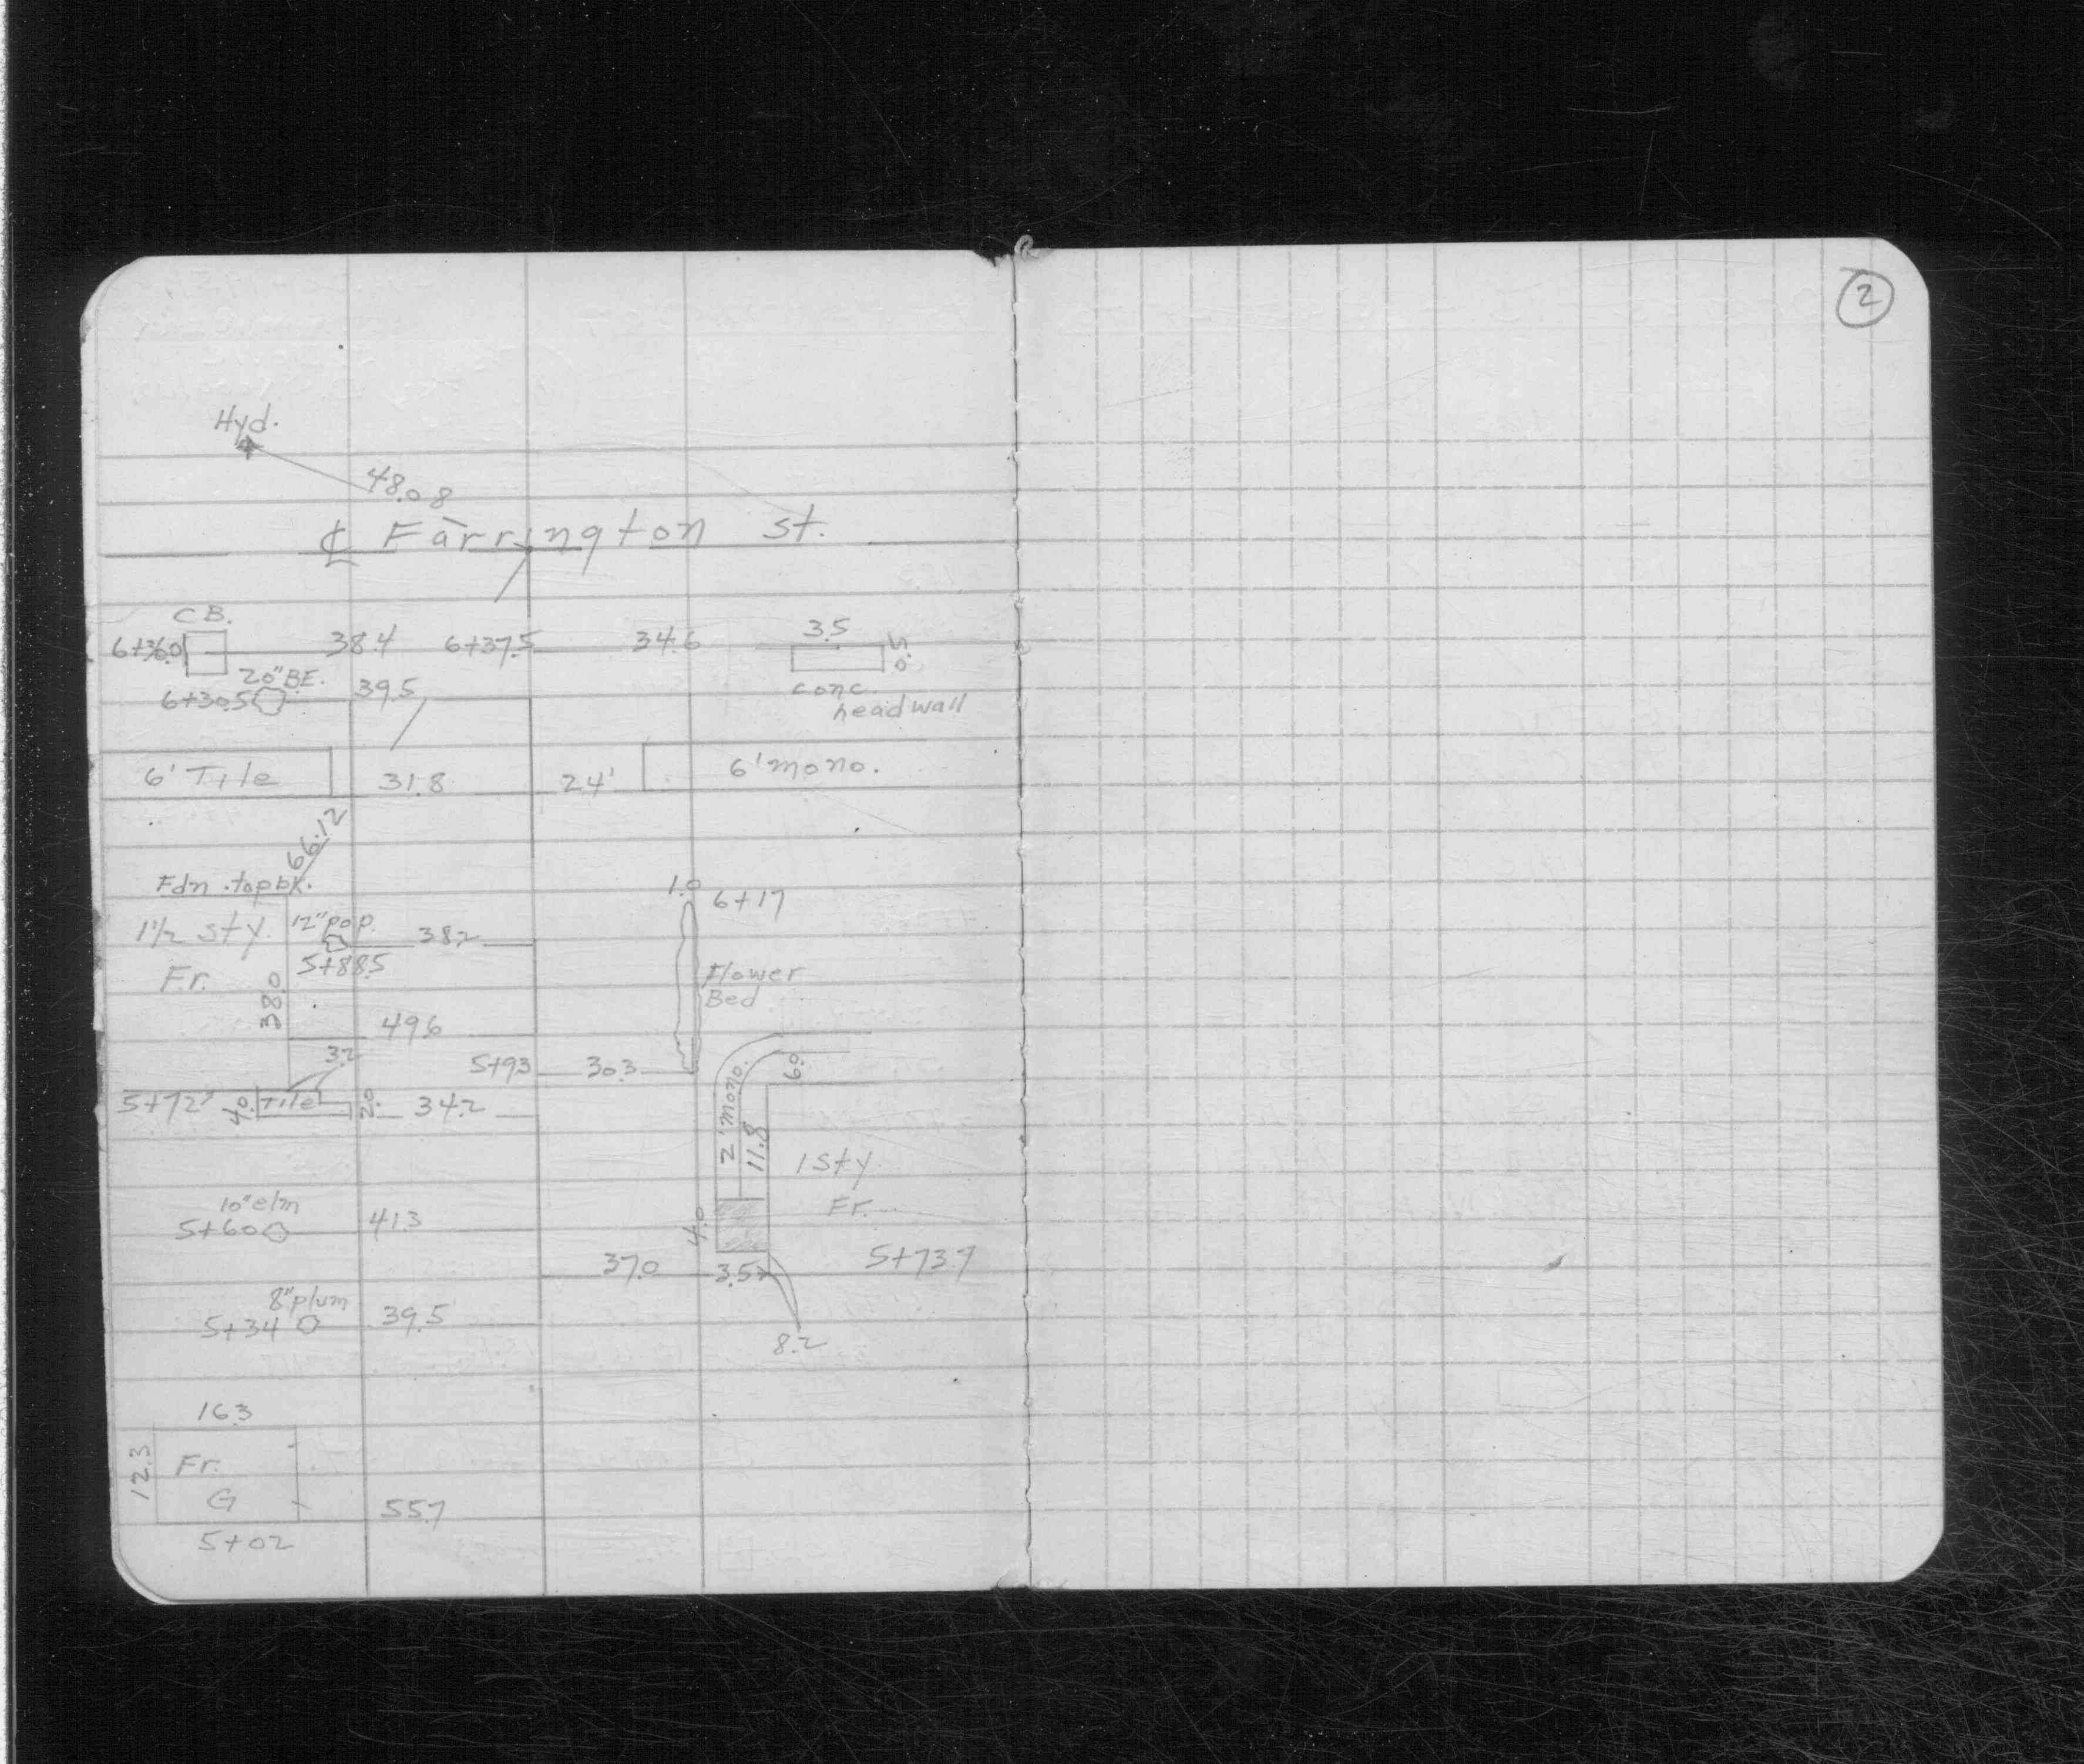 2
Hyd.
48.08
℄ Farrington St.
C B.
6+36.0 38.4 6+37.5 34.6 3.5 .5
20" B.E. conc. headwall
6+30.5 39.5
6' Tile 31.8 24' 6' mono.
66.12
Fdn. tap bk.
1.0 6+17
1 1/2 sty. 12" pop. 38.2
5+88.5
Fr. 38.0 Flower
Bed
49.6
3.2 5+93 30.3 6.0
5+72 4.0 Tile 2.0 34.2
2' mono. 11.8 1 sty
Fr.
10" elm
5+60 41.3 4.0
37.0 3.5 5+73.7
8" plum
5+34 39.5
8.2
16.3
12.3 Fr.
G 55.7
5+02